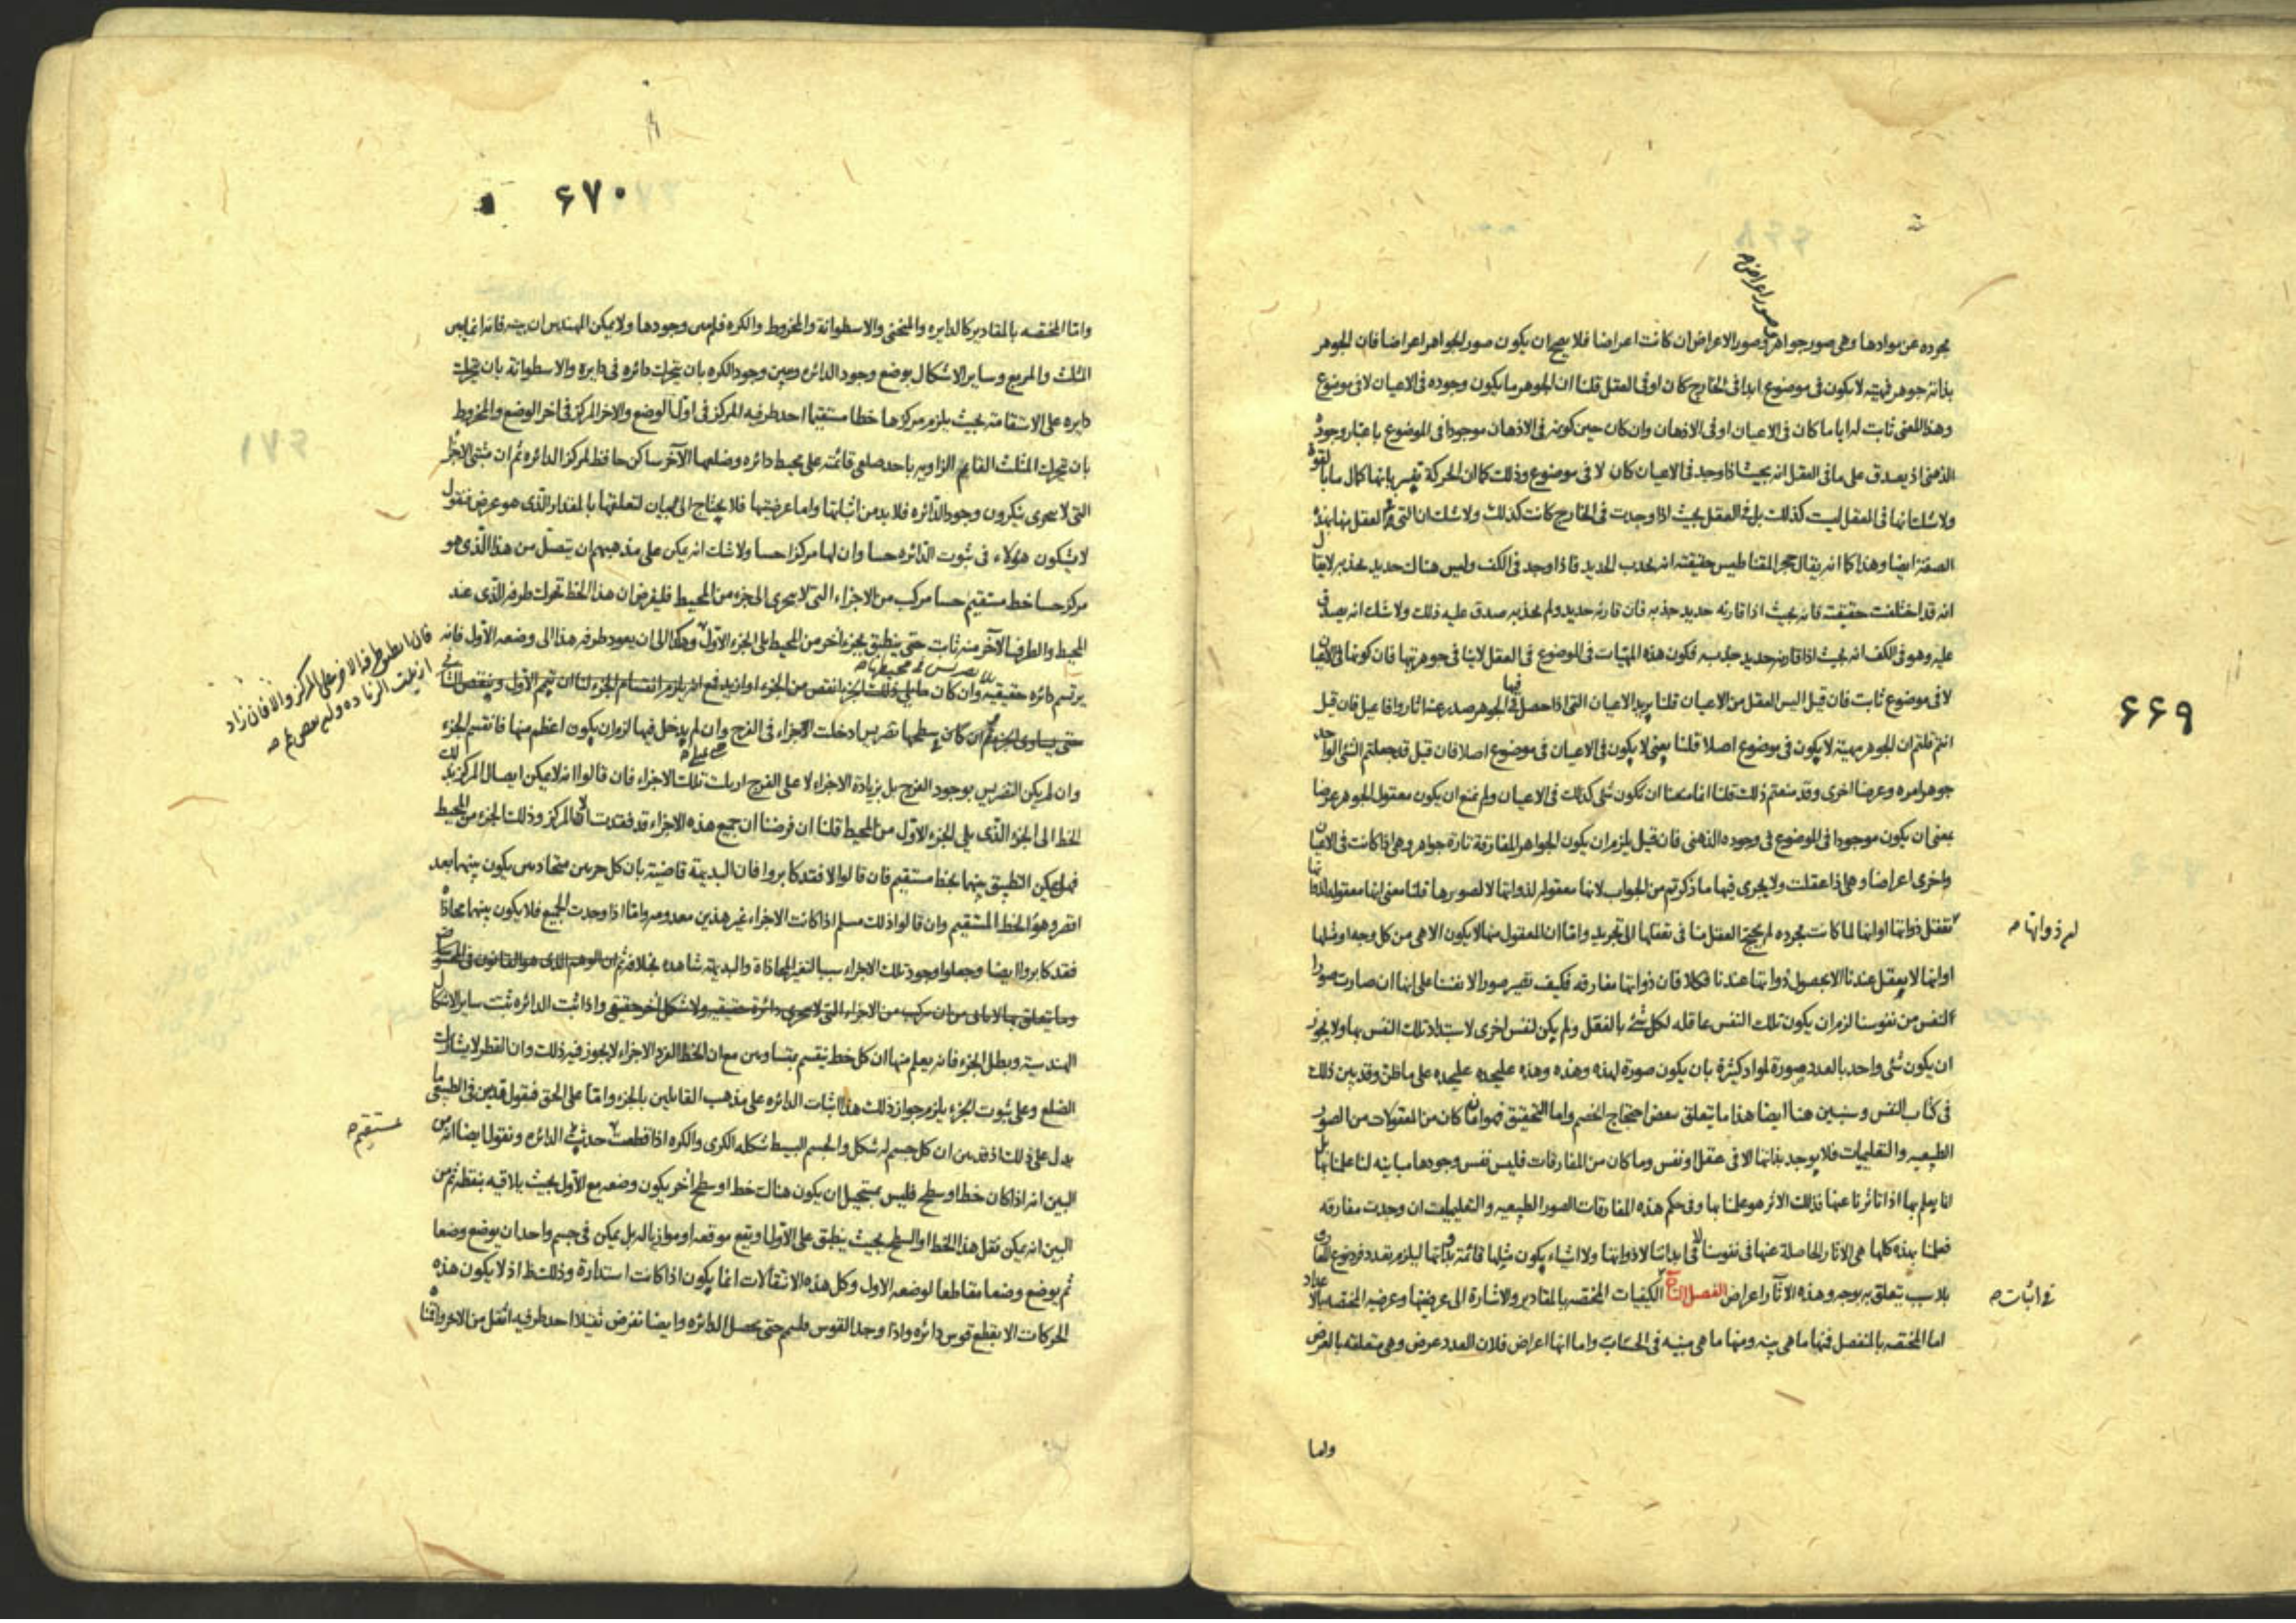 صور اعراض صح
مجرده عن موادها وهى صور جواهر وصور الاعراض ان كانت اعراضا فلا يصح ان يكون صور الجواهر اعراضا فان الجوهر
بذاته جوهر فمهيته لا يكون فى موضوع ابدا فى الخارج كان او فى العقل قلنا ان الجوهر ما يكون وجوده فى الاعيان لا فى موضوع
وهذا المعنى ثابت لها ايا ما كان فى الاعيان او فى الاذهان وان كان حين كونه فى الاذهان موجودا فى الموضوع باعتبار وجوده
الذهنى اذ يصدق على ما فى العقل انه بحيث اذا وجد فى الاعيان كان لا فى موضوع وذلك كما ان الحركة تفسر بانها كمال ما بالقوة
ولا شك انها فى العقل ليست كذلك بل فى العقل بحيث اذا وجدت فى الخارج كانت كذلك ولا شك ان التى فى العقل منها بهذه
الصفة ايضا وهذا كما انه يقال حجر المقناطيس حقيقته انه يجذب الحديد فاذا وجد فى الكف وليس هناك حديد يجذبه لا يقال
انه قد اختلفت حقيقته فانه بحيث اذا قارنه حديد جذبه فان قارنه حديد ولم يجذبه صدق عليه ذلك ولا شك انه يصدق
عليه وهو فى الكف انه بحيث اذا قارنه حديد جذبه فكون هذه المهيات فى الموضوع فى العقل لا ينافى جوهريتها فان كونها فى الاعيان
لا فى موضوع ثابت فان قيل اليس العقل من الاعيان قلنا يريد الاعيان التى اذا حصل فيها الجوهر صدر عنه اثار وافاعيل فان قيل
انتم قلتم ان الجوهر مهيته لا يكون فى موضوع اصلا قلنا يعنى لا يكون فى الاعيان فى موضوع اصلا فان قيل قد جعلتم الشئ الواحد
جوهرا مره وعرضا اخرى وقد منعتم ذلك قلنا انما منعنا ان يكون شئ كذلك فى الاعيان ولم نمنع ان يكون معقول الجوهر عرضا
بمعنى ان يكون موجودا فى الموضوع فى وجوده الذهنى فان قيل يلزم ان يكون الجواهر المفارقة تارة جواهر وهى اذا كانت فى الاعيان
واخرى اعراضا وهى اذا عقلت ولا يجرى فيها ما ذكرتم من الجواب لانها معقوله لذواتها لا لصورها قلنا معنى انها معقوله لذواتها
تعقل ذواتها او انها لما كانت مجرده لم يحتج العقل منا فى تعقلها الى تجريد واما ان المعقول منها لا يكون الا هى من كل وجه او مثلها
له ذواتها صح
او انها لا يعقل عندنا الا بحصول ذواتها عندنا فكلا فان ذواتها مفارقه فكيف تصير صور الانفسنا على انها ان صارت صورا
النفس من نفوسنا لزم ان يكون تلك النفس عاقله لكل شئ بالفعل ولم يكن لنفس اخرى لاستبداد تلك النفس بها ولا يجوز
ان يكون شئ واحد بالعدد صورة لمواد كثيرة بان يكون صورة لهذه وهذه وهذه عليحده عليحده على ما ظن وقد بين ذلك
فى كتاب النفس وسنبين هنا ايضا هذا ما يتعلق بنقض احتجاج الخصم واما التحقيق فهو ان ما كان من المعقولات من الصور
الطبيعيه والتعليميات فلا يوجد بذاتها الا فى عقل او نفس وما كان من المفارقات فليس نفس وجودها مباينه لنا علمنا بها بل
انا يعلم بها اذا تاثرنا عنها فذلك الاثر هو علمنا بها وفى حكم هذه المفارقات الصور الطبيعيه والتعليميات ان وجدت مفارقه
فعلمنا بهذه كلها هى الاثار الحاصلة عنها فى نفوسنا لا فى ابداننا لا ذواتها ولا اشياء يكون مثلها قائمة بذواتها ليلزم تعدد فرد نوع المفارق
بلا سبب يتعلق به بوجه وهذه الاثار اعراض الفصل الثامن الكيفيات المختصه بالمقادير والاشارة الى عرضيتها وعرضيه المختصه بالاعداد
فى اثبات صح
اما المختصه بالمنفصل فمنها ما هى بينه ومنها ما هى مبينه فى الحساب واما انها اعراض فلان العدد عرض وهى متعلقه بالعرض
واما
۶۶۹
۶۷۰
واما المختصه بالمقادير كالدايره والمنحنى والاسطوانة والمخروط والكره فليس وجودها ولا يمكن المهندس ان يبينه فانه انما يبين
المثلث والمربع وساير الاشكال بوضع وجود الدائره ويبين وجود الكره بان يتحرك دائره فى دايره والاسطوانة بان يتحرك
دايره على الاستقامة بحيث يلزم مركزها خطا مستقيما احد طرفيه المركز فى اول الوضع والاخر المركز فى اخر الوضع والمخروط
بان يتحرك المثلث القايم الزاويه باحد ضلعى قائمته على محيط دائره وضلعها الآخر ساكن حافظ لمركز الدائره ثم ان مثبتى الاجزاء
التى لا يتجزى ينكرون وجود الدائره فلا بد من اثباتها واما عرضيتها فلا يحتاج الى بيان لتعلقها بالمقدار الذى هو عرض فنقول
لا يشكون هؤلاء فى ثبوت الدائره حسا وان لها مركزا حسا ولا شك انه يمكن على مذهبهم ان يتصل من هذا الذى هو
مركز حسا خط مستقيم حسا مركب من الاجزاء التى لا يتجزى الى جزء من المحيط فليفرض ان هذا الخط تحرك طرفه الذى عند
المحيط والطرف الآخر منه ثابت حتى ينطبق بجزء اخر من المحيط يلى الجزء الاول وهكذا الى ان يعود طرفه هذا الى وضعه الاول فانه
يرتسم دائره حقيقيه وان كان ما يلى ذلك الجزء انقص من الجزء او ازيد فمع انه يلزم انقسام الجزء لنا ان يتم الاول وينقص الثانى
حتى يساوى الجزء ثم ان كان سطحها تضريس ادخلت الاجزاء فى الفرج وان لم يدخل فيها لزم ان يكون اعظم منها فانقسم الجزء
وان لم يكن التضريس بوجود الفرج بل بزيادة الاجزاء لا على الفرج ازيلت تلك الاجزاء فان قالوا انه لا يمكن ايصال المركز بذلك
الخط الى الجزء الذى يلى الجزء الاول من المحيط قلنا ان فرضنا ان جميع هذه الاجزاء قد فقدت الا المركز وذلك الجزء من المحيط
فهل يمكن التطبيق بينهما بخط مستقيم فان قالوا لا فقد كابروا فان البديهة قاضية بان كل جزءين متحاذيين يكون بينهما بعد
اقصر وهو الخط المستقيم وان قالوا ذلك مسلم اذا كانت الاجزاء غير هذين معدومه واما اذا وجدت الجميع فلا يكون بينهما محاذاة
فقد كابروا ايضا وجعلوا وجود تلك الاجزاء سببا لتغير المحاذاة والبديهة شاهده بخلافه ثم ان الوهم الذى هو القانون فى
وما يتعلق بها لا يابى من ان يركب من الاجزاء التى لا يتجزى دائرة حقيقيه ولا شكل آخر حقيقى واذا ثبت الدائره ثبت ساير الاشكال
الهندسيه ويبطل الجزء فانه يعلم منها ان كل خط ينقسم بمتساويين مع ان الخط الفرد الاجزاء لا يجوز فيه ذلك وان القطر لا يشارك
الضلع وعلى ثبوت الجزء يلزم جواز ذلك هذا اثبات الدائره على مذهب القايلين بالجزء واما على الحق فنقول قد بين فى الطبيعى ما
يدل على ذلك اذ قد بين ان كل جسم له شكل والجسم البسيط شكله الكرى والكره اذا قطعت حدثت الدائره ونقول ايضا انه من
مستقيم صح
البين انه اذا كان خط او سطح فليس بمستحيل ان يكون هناك خط او سطح آخر يكون وضعه مع الاول بحيث يلاقيه بنقطه ثم من
البين انه يمكن نقل هذا الخط او السطح بحيث ينطبق على الاول او يقع موقعه او موازيا له بل يمكن فى جسم واحد ان يوضع وضعا
ثم يوضع وضعا مقاطعا لوضعه الاول وكل هذه الانتقالات انما يكون اذا كانت استدارة وذلك ظ اذ لا يكون هذه
الحركات الا بقطع قوس دائره واذا وجد القوس فليتم حتى يحصل الدائره وايضا نفرض ثقيلا احد طرفيه اثقل من الاخر واقفا